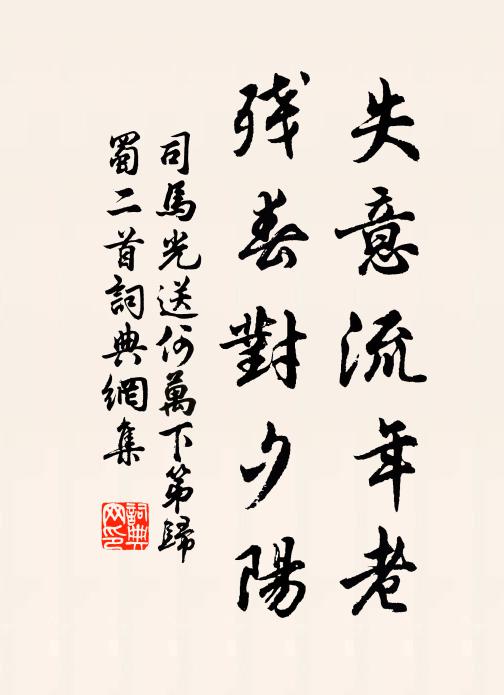 失意流年老
残春對夕陽
司馬光送何萬下第歸
蜀二首詞典網集
詞典
网印